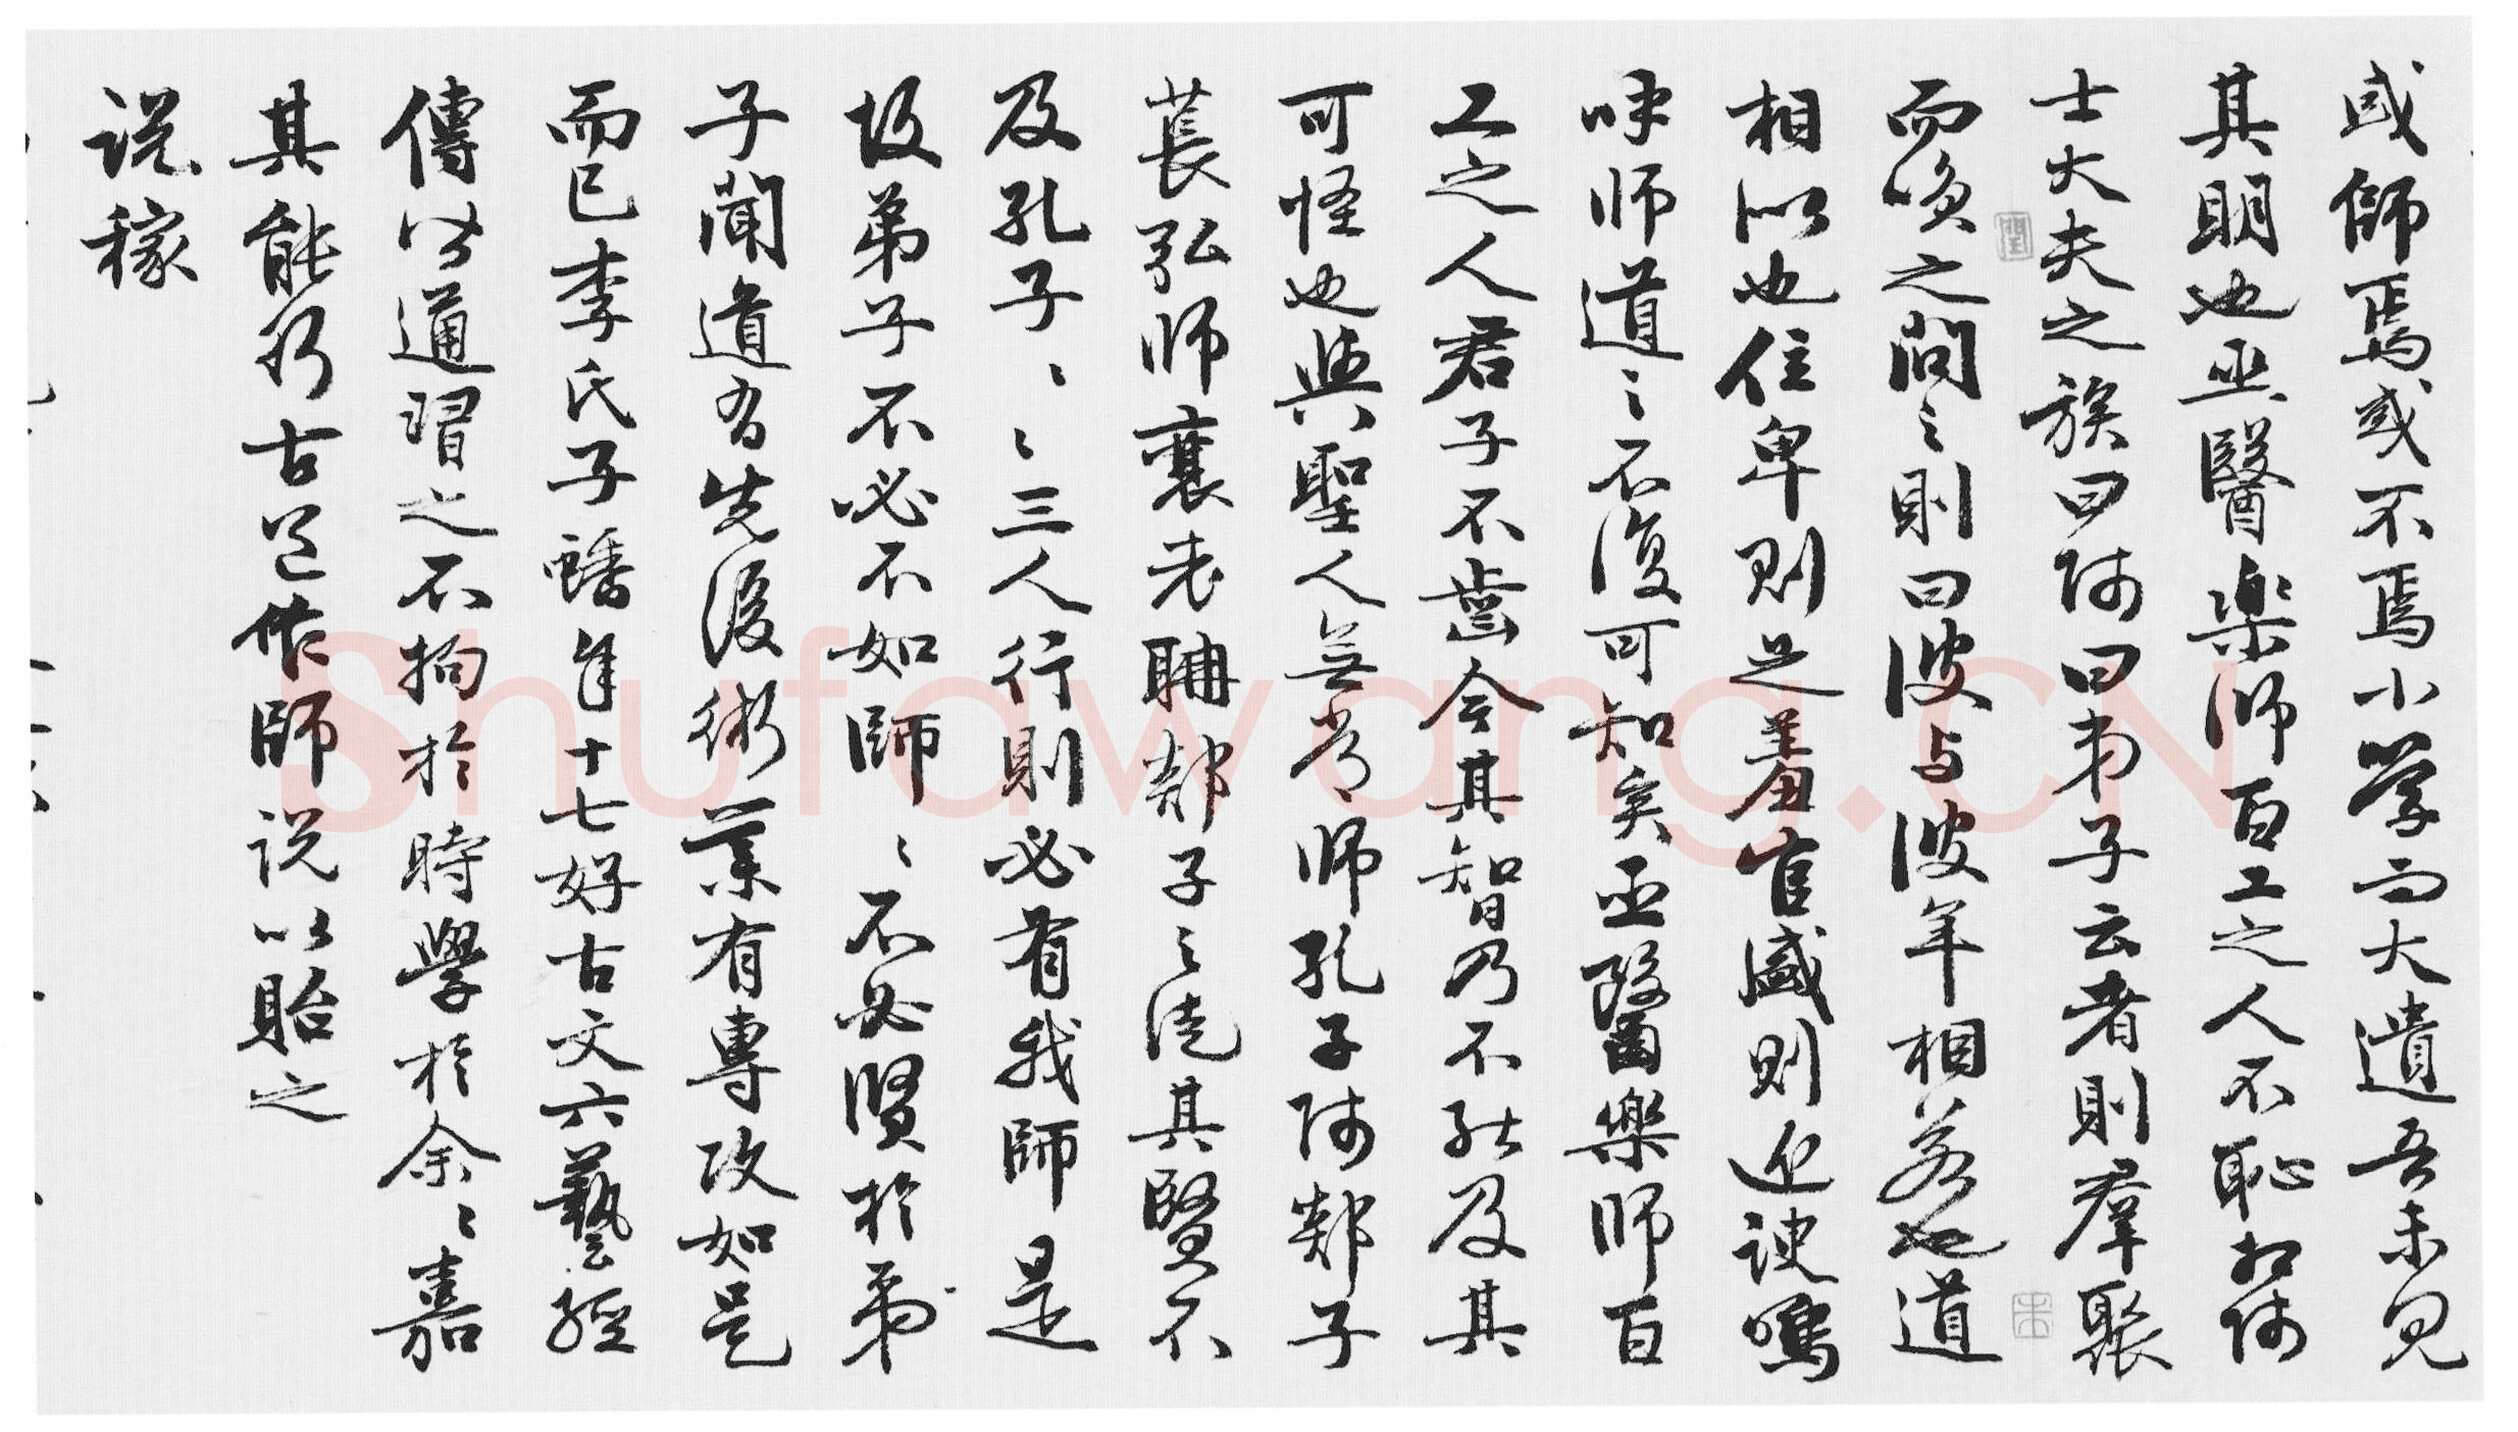 或師焉或不焉小学而大遺吾未見
其明也巫醫樂師百工之人不恥相師
士大夫之族曰師曰弟子云者則羣聚
而笑之問之則曰彼与彼年相若也道
相似也位卑則足羞官盛則近諛嗚
呼師道之不復可知矣巫醫樂師百
工之人君子不齒今其智乃不能及其
可怪也與聖人無常師孔子師郯子
萇弘師襄老聃郯子之徒其賢不
及孔子孔子曰三人行則必有我師是
故弟子不必不如師師不必賢於弟
子聞道有先後術業有專攻如是
而已李氏子蟠年十七好古文六藝經
傳皆通習之不拘於時學於余余嘉
其能行古道作師説以貽之
説稼
Shufawang.CN